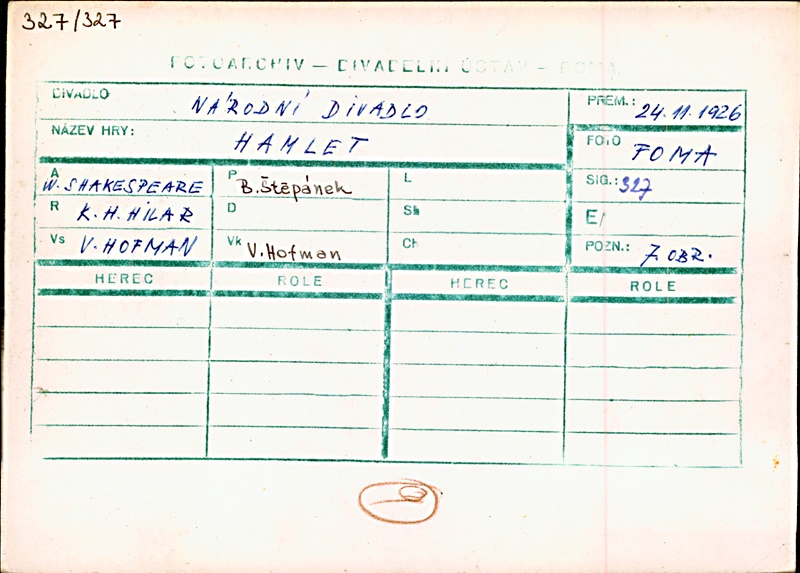 327/327
FOTOARCHIV — DIVADELNÍ ÚSTAV - FOMA
DIVADLO NÁRODNÍ DIVADLO PREM.: 24.11.1926
NÁZEV HRY: HAMLET FOTO FOMA
A W. SHAKESPEARE P B. Štěpánek L SIG.: 327
R K. H. HILAR D Sh E/
Vs V. HOFMAN Vk V. Hofman Ch POZN.: 7. OBR.
HEREC ROLE HEREC ROLE